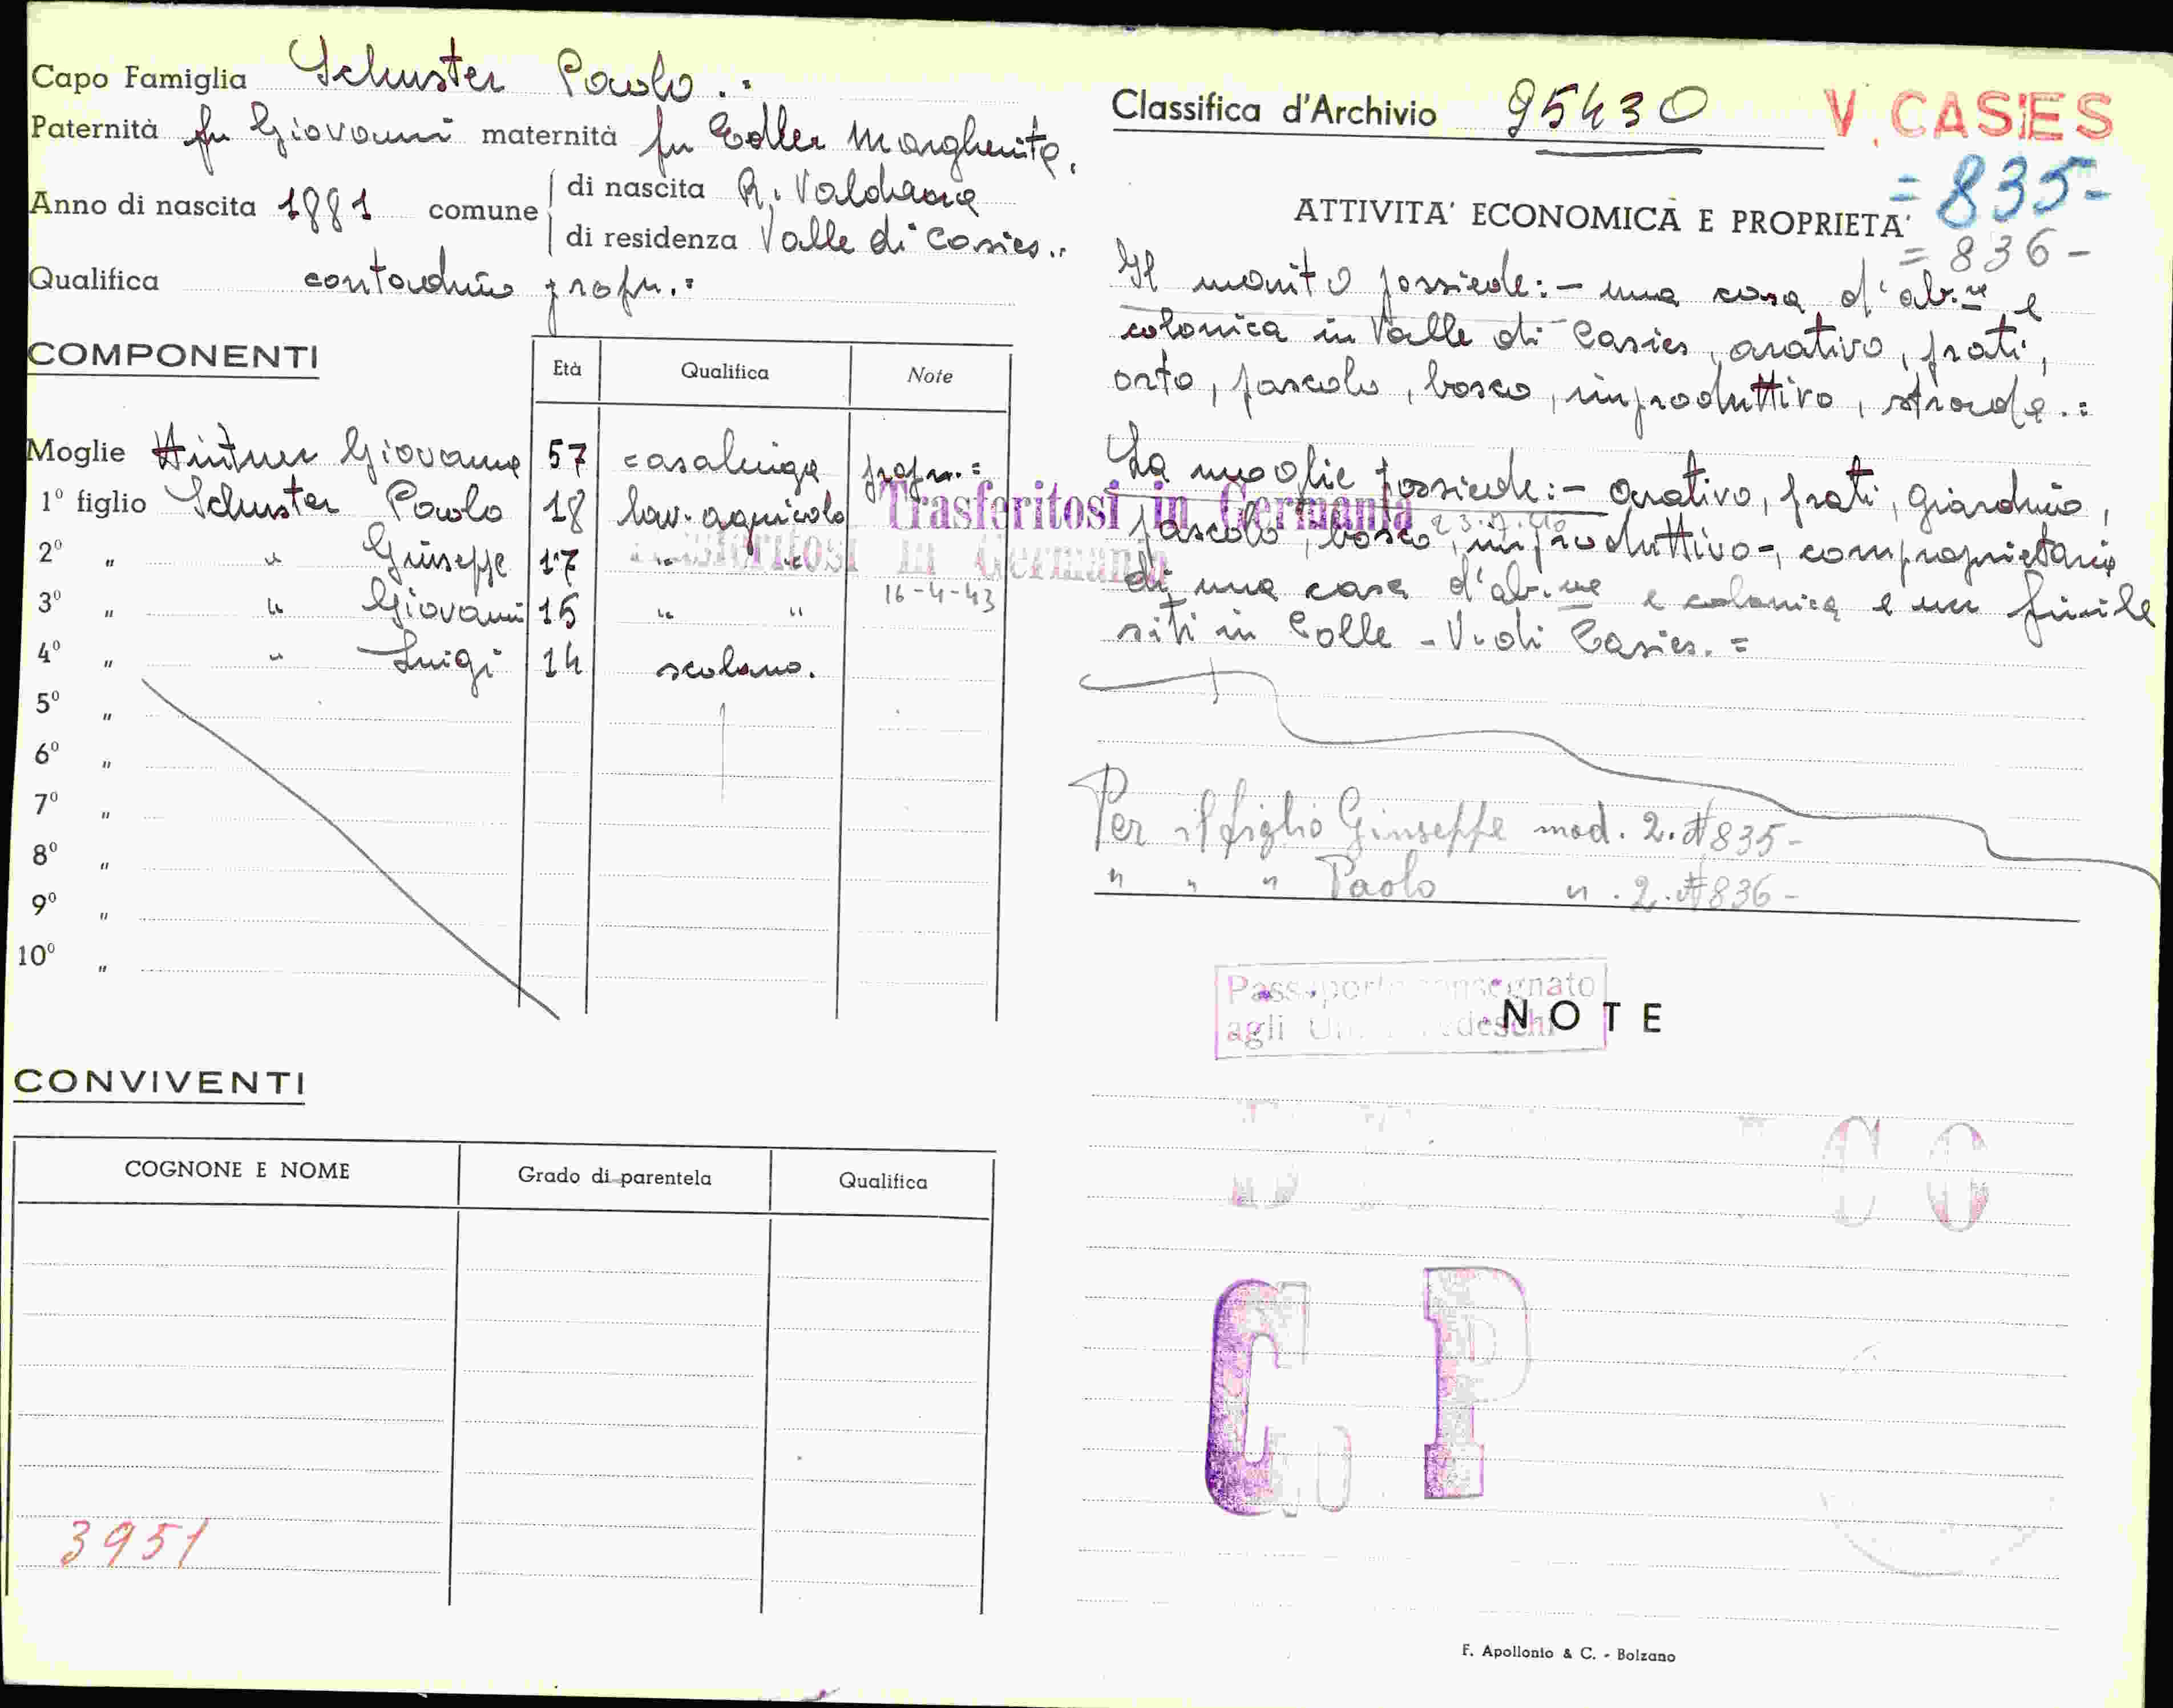 Capo Famiglia Schuster Paolo . :
Paternità fu Giovanni maternità fu Edler Margherita.
Anno di nascita 1881 comune
di nascita R. Valdaora
di residenza Valle di Casies..
Qualifica contadino propr. :
COMPONENTI
Età Qualifica Note
Moglie Hintner Giovanna 57 casalinga propr. =
1° figlio Schuster Paolo 18 lav. agricolo Trasferitosi in Germania
23.7.40
2° " " Giuseppe 17 " " Trasferitosi in Germania
3° " " Giovanni 15 " " 16-4-43
4° " " Luigi 14 scolaro.
5° "
6° "
7° "
8° "
9° "
10° "
CONVIVENTI
COGNONE E NOME Grado di parentela Qualifica
3951
Classifica d'Archivio 95430 V. CASIES
= 835-
ATTIVITA' ECONOMICA E PROPRIETA'
= 836-
Il marito possiede: - una casa d'ab.ne e
colonica in Valle di Casies, arativo, prati,
orto, pascolo, bosco, improduttivo, strada. :
La moglie possiede: - arativo, prati, giardino,
pascolo, bosco, improduttivo-, comproprietaria
di una casa d'ab.ne e colonica e un fienile
siti in Colle - V. di Casies. =
Per il figlio Giuseppe mod. 2. # 835-
" " " Paolo " . 2. # 836-
Passaporto consegnato
agli Uff. Tedeschi
NOTE
C O
C P
F. Apollonio & C. - Bolzano